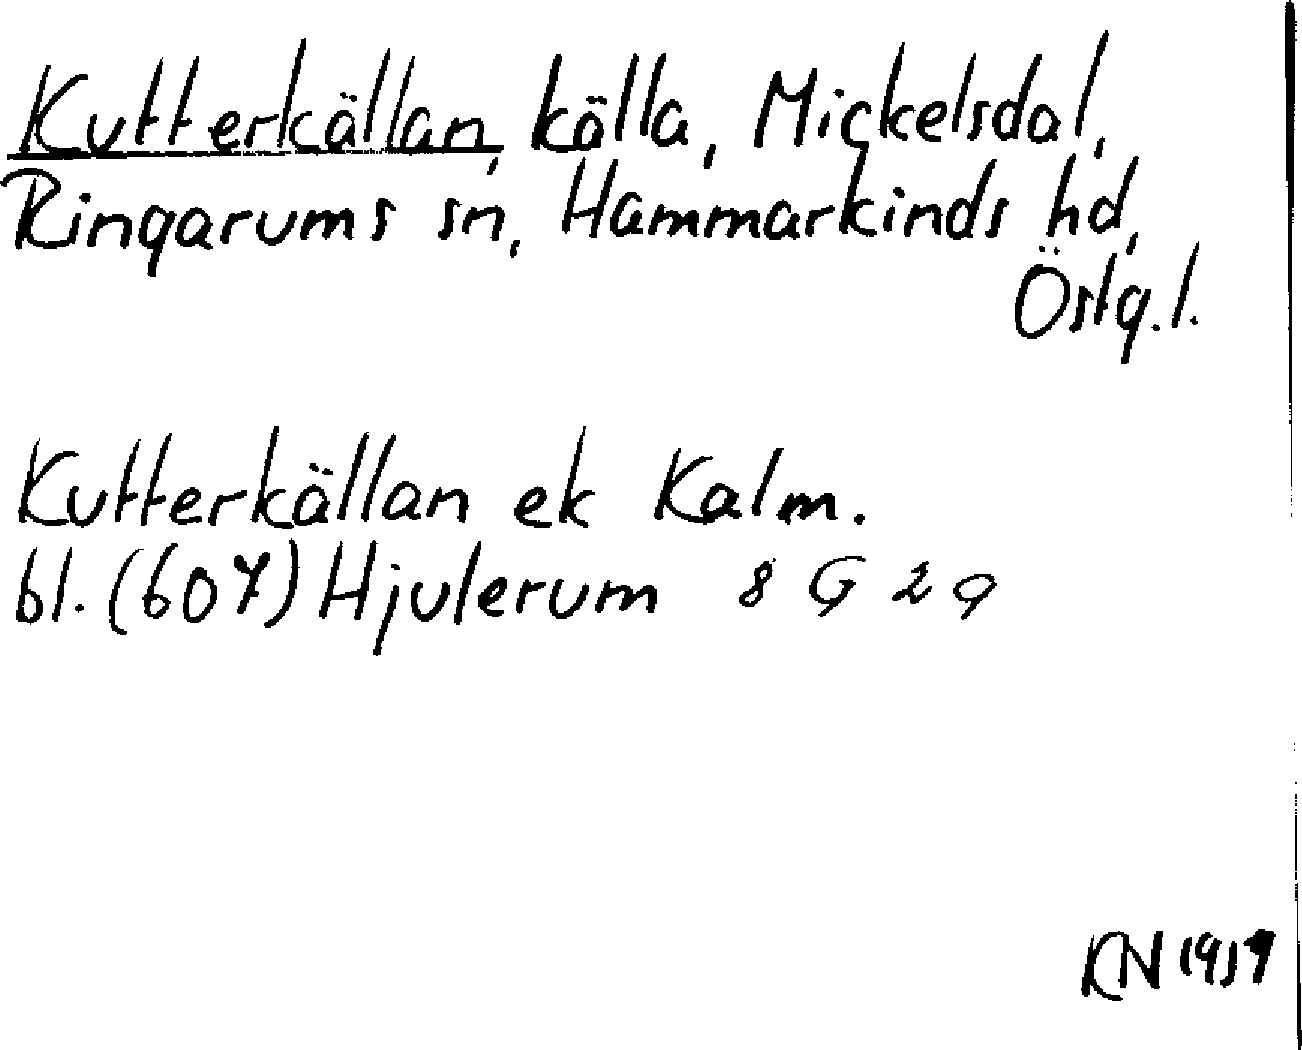 Kutterkällan, källa, Mickelsdal,
Ringarums sn, Hammarkinds hd,
Östg.l.
Kutterkällan ek Kalm.
bl. (607) Hjulerum 8 G 2 g
KN